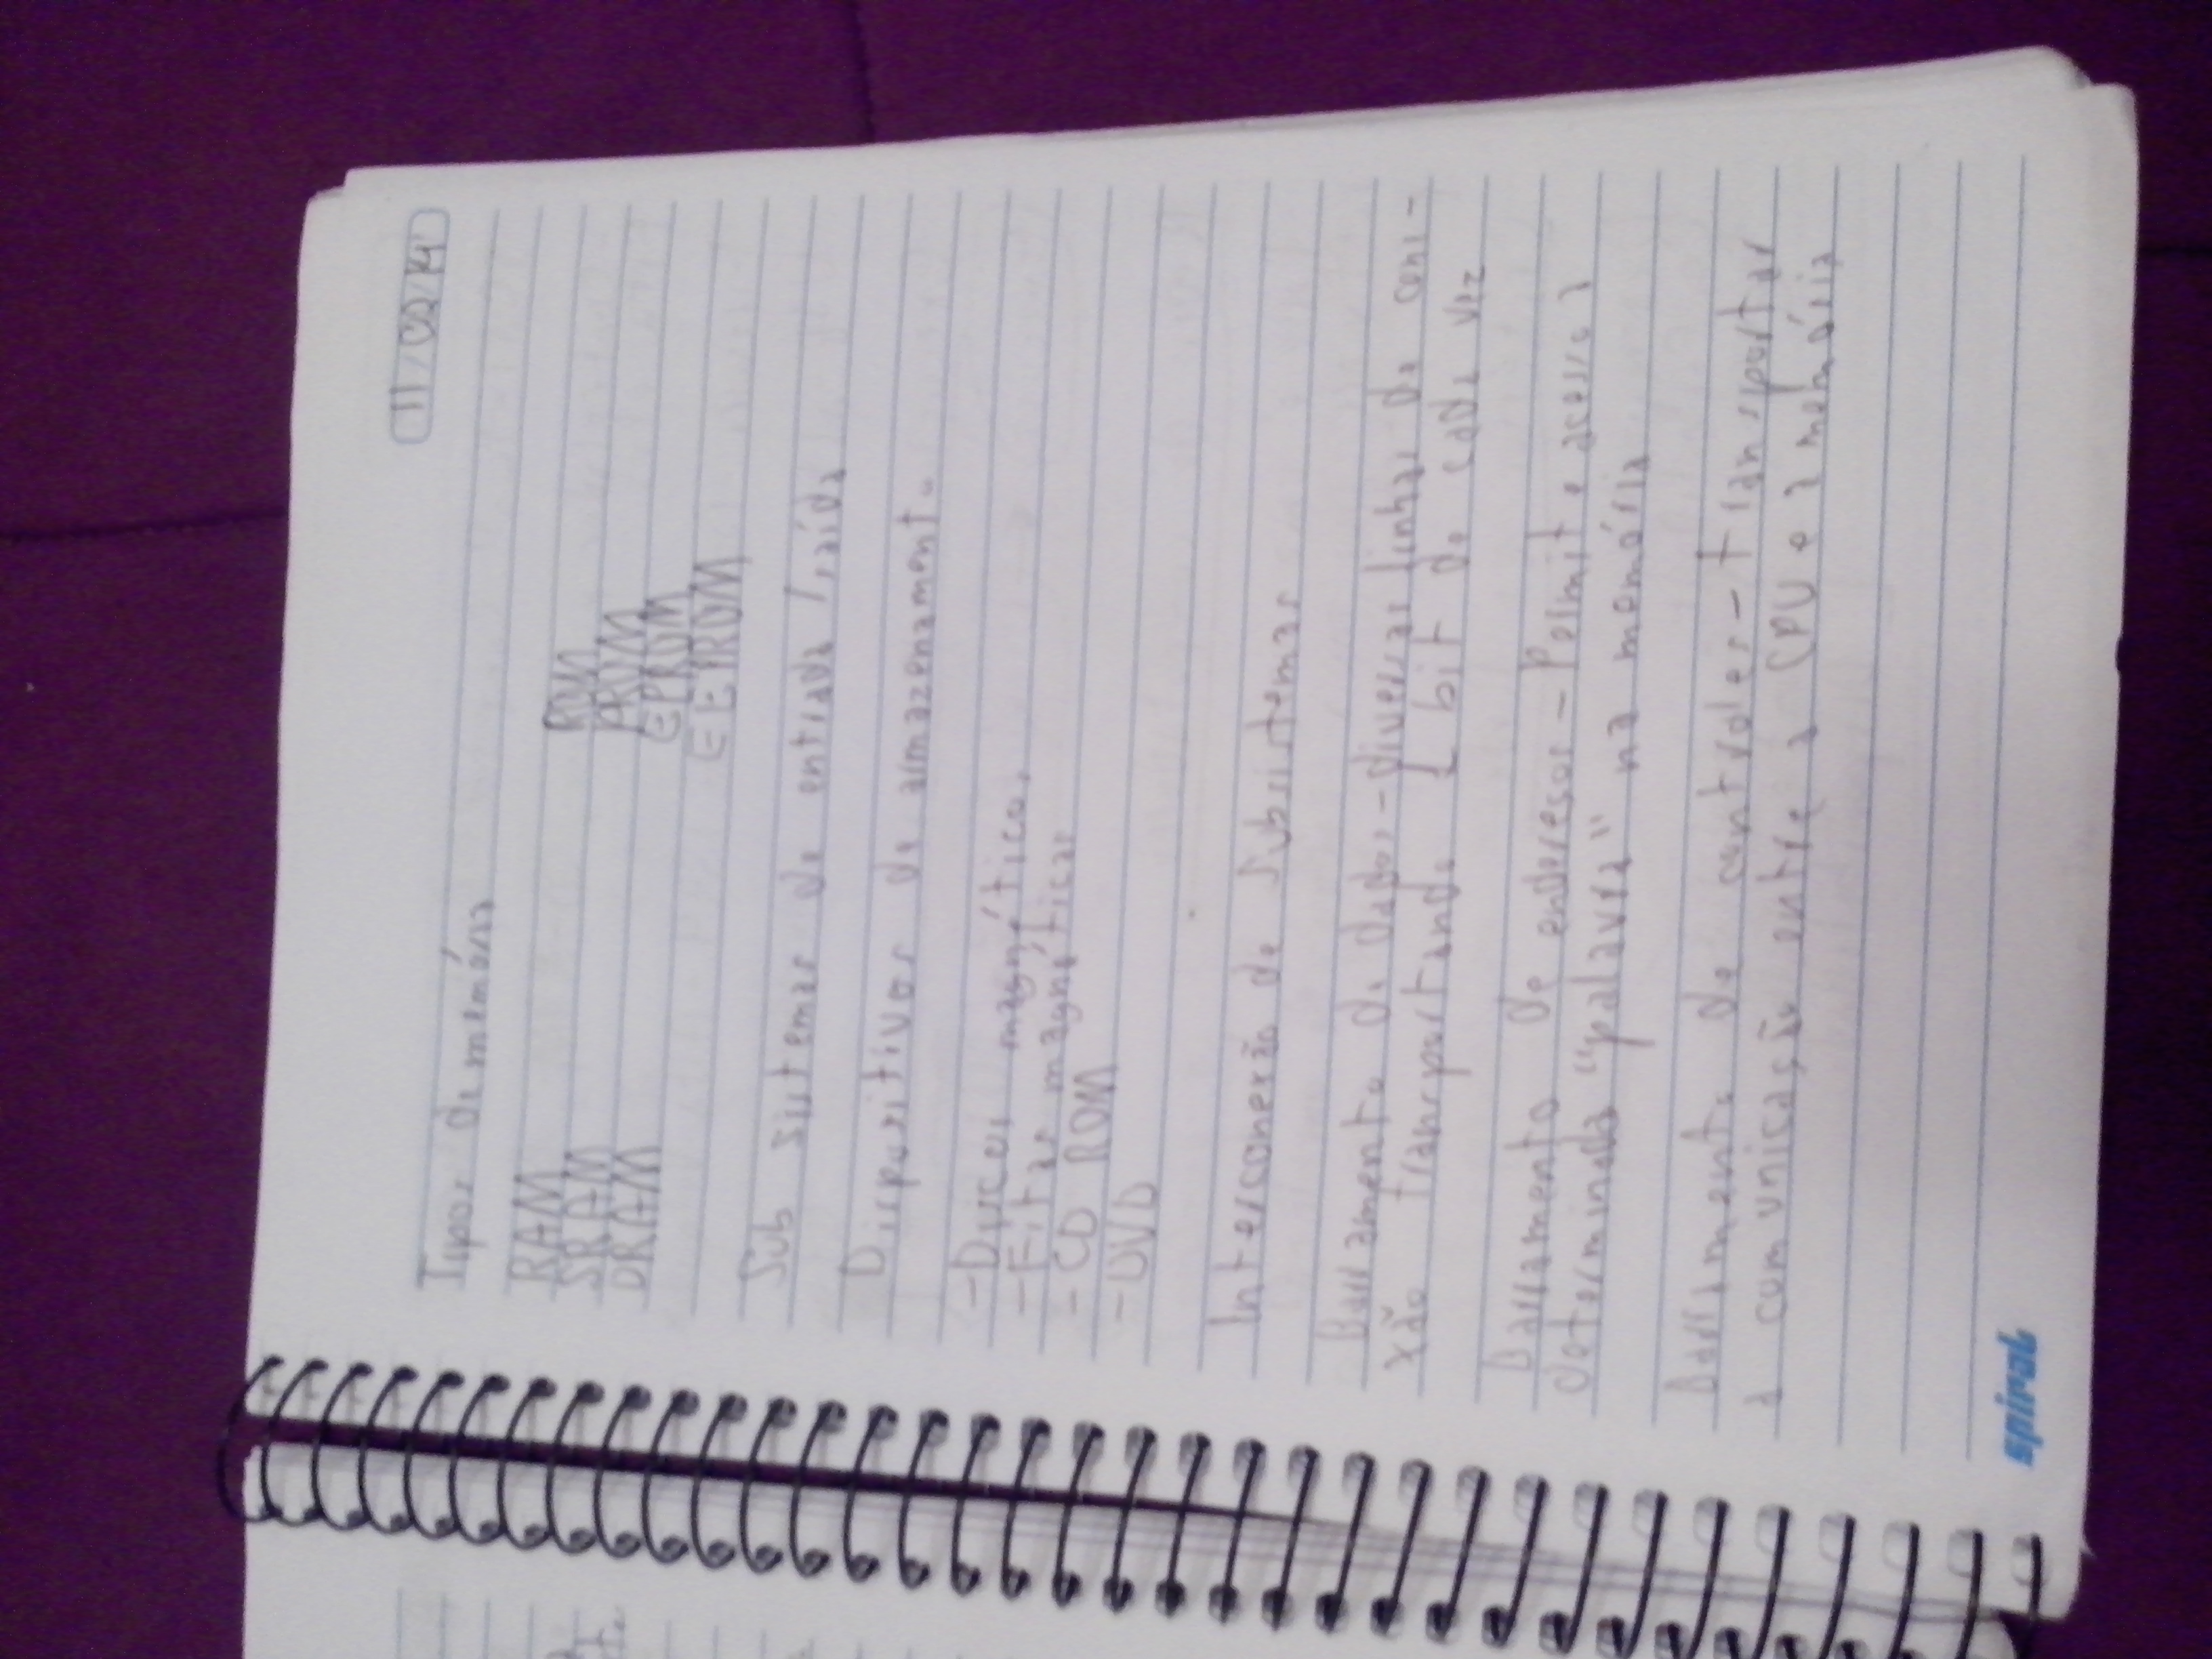 11/02/14
Tipos de memória
RAM
SRAM
DRAM
ROM
PROM
EPROM
EEPROM
Sub sistemas de entrada/saída
Dispositivos de armazenamento
-Discos magnéticos
-Fitas magnéticas
-CD ROM
-DVD
Interconexão de Subsistemas
Barramento de dados-diversas linhas de cone-
xão transportando 1 bit de cada vez
Barramento de enderesos-Permite acesso a
determinada "palavra" na memória
Barramento de controles-transportar
a comunicação entre a CPU e a memória
spiral